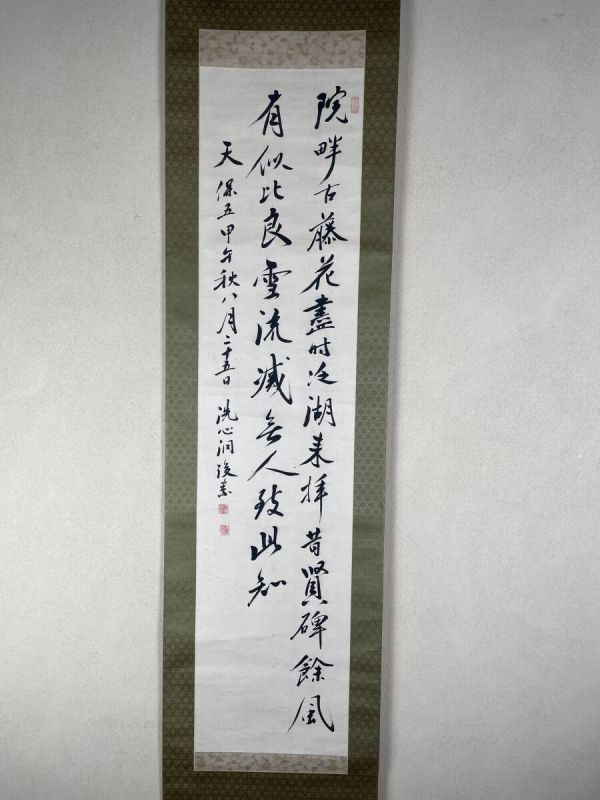 院畔古藤花盡時泛湖来拝昔賢碑餘風
有似比良雪流滅無人致此知
天保五甲午秋八月二十五日 洗心洞後素